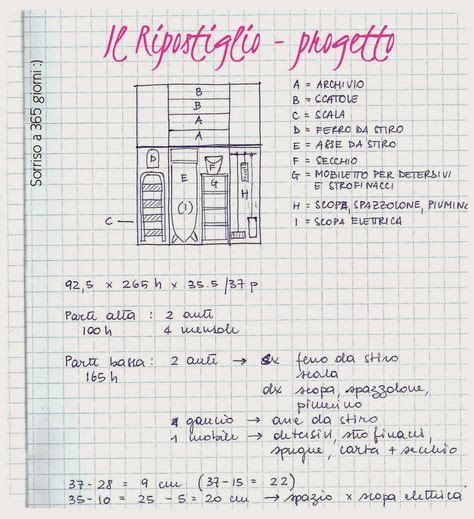 Il Ripostiglio - progetto
Sorriso a 365 giorni :)
B
B
A
A
D
E
F
G
H
(I)
C
A = ARCHIVIO
B = SCATOLE
C = SCALA
D = FERRO DA STIRO
E = ASSE DA STIRO
F = SECCHIO
G = MOBILETTO PER DETERSIVI
E STROFINACCI
H = SCOPA, SPAZZOLONE, PIUMINO
I = SCOPA ELETTRICA
92,5 x 265 h x 35.5 / 37 p
Parte alta : 2 anti
100 h 4 mensole
Parte bassa : 2 anti → sx ferro da stiro
165 h scala
dx scopa, spazzolone,
piumino
1 gancio → asse da stiro
1 mobile → detersivi, strofinacci,
spugne, carta + secchio
37 - 28 = 9 cm (37 - 15 = 22)
35 - 10 = 25 - 5 = 20 cm → spazio x scopa elettrica